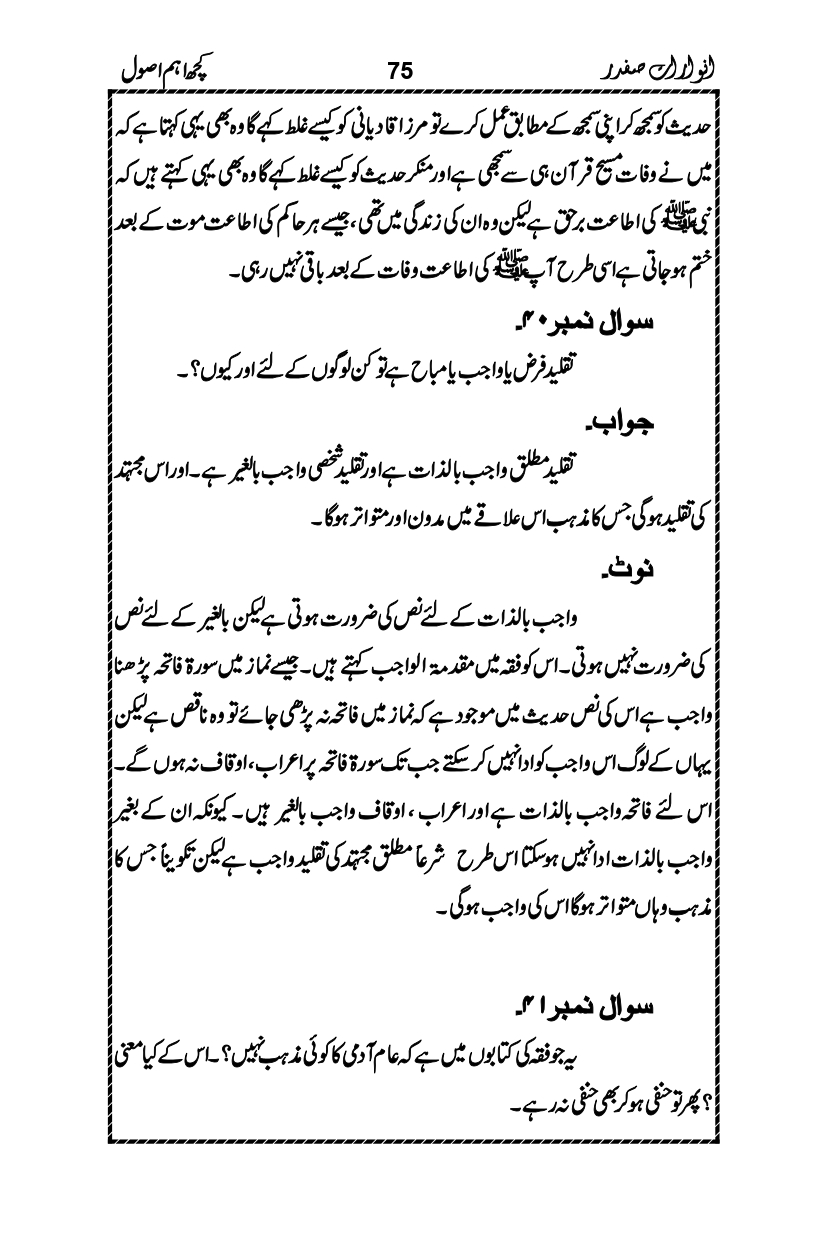 انوارات صفدر 75 کچھ اہم اصول
حدیث کو سمجھ کر اپنی سمجھ کے مطابق عمل کرے تو مرزا قادیانی کو کیسے غلط کہے گا وہ بھی یہی کہتا ہے کہ
میں نے وفات مسیح قرآن ہی سے سمجھی ہے اور منکر حدیث کو کیسے غلط کہے گا وہ بھی یہی کہتے ہیں کہ
نبی ﷺ کی اطاعت برحق ہے لیکن وہ ان کی زندگی میں تھی، جیسے ہر حاکم کی اطاعت موت کے بعد
ختم ہو جاتی ہے اسی طرح آپ ﷺ کی اطاعت وفات کے بعد باقی نہیں رہی۔
سوال نمبر ۴۰۔
تقلید فرض یا واجب یا مباح ہے تو کن لوگوں کے لئے اور کیوں؟۔
جواب۔
تقلید مطلق واجب بالذات ہے اور تقلید شخصی واجب بالغیر ہے۔ اور اس مجتہد
کی تقلید ہوگی جس کا مذہب اس علاقے میں مدون اور متواتر ہوگا۔
نوٹ۔
واجب بالذات کے لئے نص کی ضرورت ہوتی ہے لیکن بالغیر کے لئے نص
کی ضرورت نہیں ہوتی۔ اس کو فقہ میں مقدمۃ الواجب کہتے ہیں۔ جیسے نماز میں سورۃ فاتحہ پڑھنا
واجب ہے اس کی نص حدیث میں موجود ہے کہ نماز میں فاتحہ نہ پڑھی جائے تو وہ ناقص ہے لیکن
یہاں کے لوگ اس واجب کو ادا نہیں کر سکتے جب تک سورۃ فاتحہ پر اعراب، اوقاف نہ ہوں گے۔
اس لئے فاتحہ واجب بالذات ہے اور اعراب، اوقاف واجب بالغیر ہیں۔ کیونکہ ان کے بغیر
واجب بالذات ادا نہیں ہو سکتا اس طرح شرعاً مطلق مجتہد کی تقلید واجب ہے لیکن تکویناً جس کا
مذہب وہاں متواتر ہوگا اس کی واجب ہوگی۔
سوال نمبر ۴۱۔
یہ جو فقہ کی کتابوں میں ہے کہ عام آدمی کا کوئی مذہب نہیں؟۔ اس کے کیا معنی
؟ پھر تو حنفی ہو کر بھی حنفی نہ رہے۔